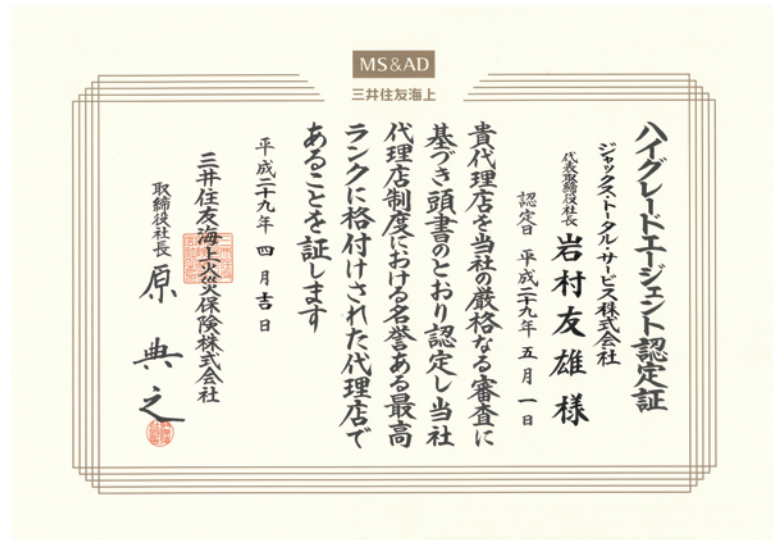 MS&AD
三井住友海上
ハイグレードエージェント認定証
ジャックス・トータル・サービス株式会社
代表取締役社長 岩村友雄様
認定日 平成二十九年五月一日
貴代理店を当社の厳格なる審査に
基づき頭書のとおり認定し当社
代理店制度における名誉ある最高
ランクに格付けされた代理店で
あることを証します
平成二十九年四月吉日
三井住友海上火災保険株式会社
取締役社長 原典之